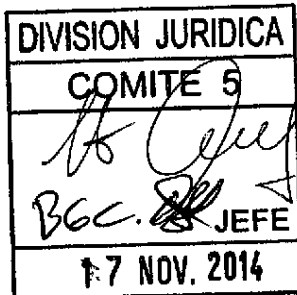 DIVISION JURIDICA
COMITE 5
BGC.
JEFE
17 NOV. 2014